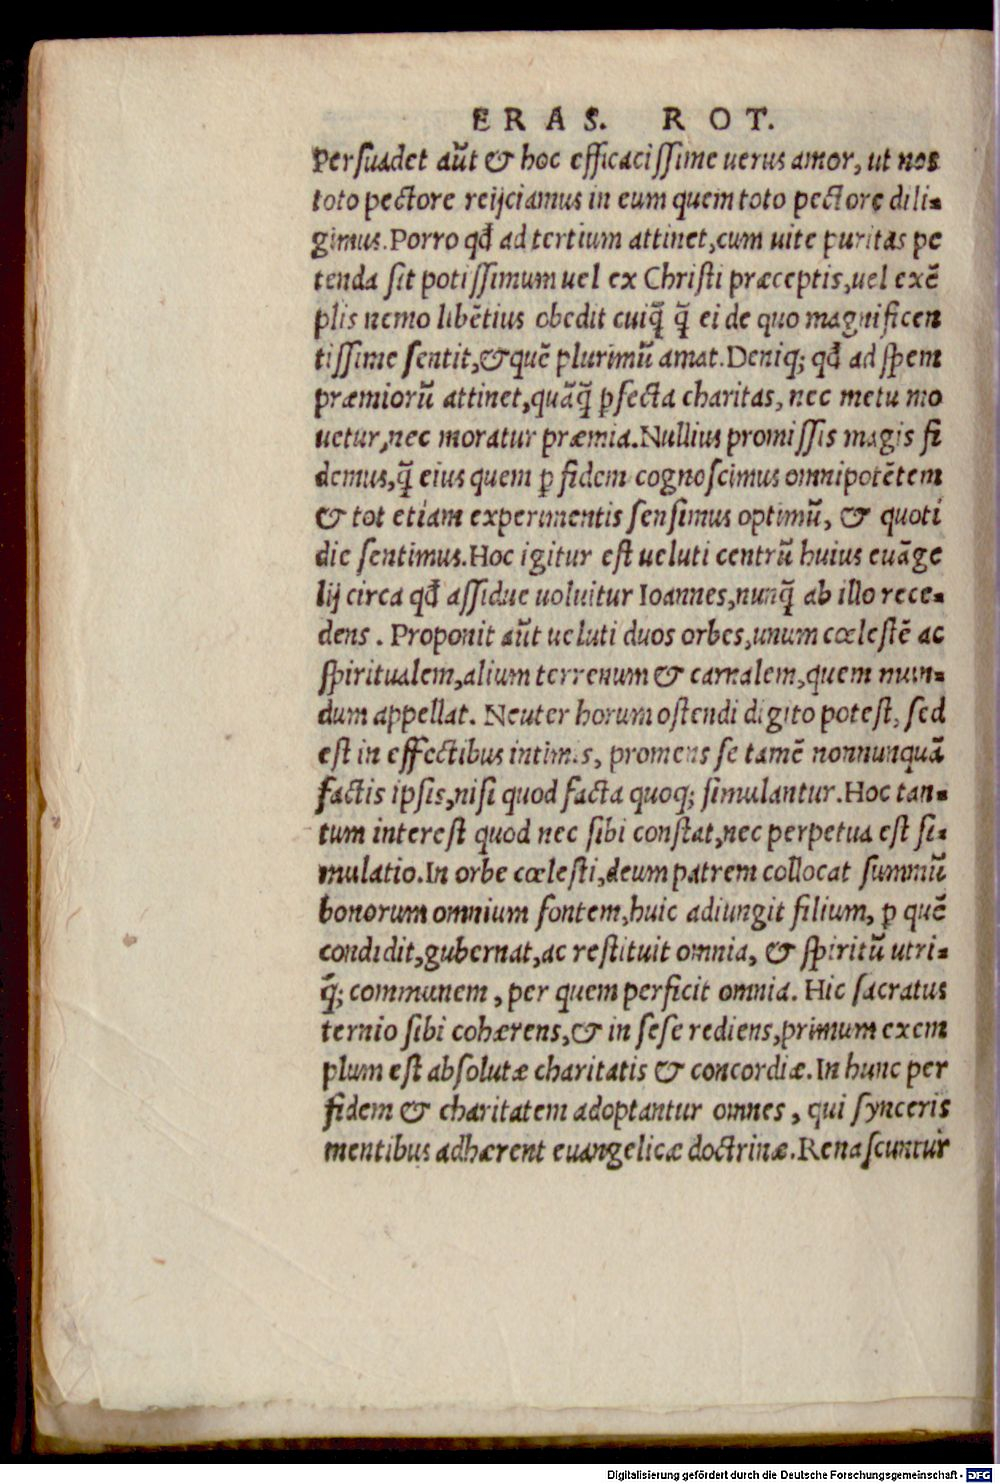 ERAS. ROT.
Persuadet aũt & hoc efficacissime uerus amor, ut nos
toto pectore reijciamus in eum quem toto pectore dili-
gimus. Porro qđ ad tertium attinet, cum uite puritas pe
tenda sit potissimum uel ex Christi præceptis, uel exẽ
plis nemo libẽtius obedit cuiq̃ q̃ ei de quo magnificen
tissime sentit, & quẽ plurimũ amat. Deniq; qđ ad spem
præmiorũ attinet, quãq̃ ꝑfecta charitas, nec metu mo
uetur, nec moratur præmia. Nullius promissis magis fi
demus, q̃ eius quem ꝑ fidem cognoscimus omnipotẽtem
& tot etiam experimentis sensimus optimũ, & quoti
die sentimus. Hoc igitur est ueluti centrũ huius euãge
lij circa qđ assidue uoluitur Ioannes, nunq̃ ab illo rece-
dens. Proponit aũt ueluti duos orbes, unum cœlestẽ ac
spiritualem, alium terrenum & carnalem, quem mun-
dum appellat. Neuter horum ostendi digito potest, sed
est in effectibus intimis, promens se tamẽ nonnunquã
factis ipsis, nisi quod facta quoq; simulantur. Hoc tan-
tum interest quod nec sibi constat, nec perpetua est si-
mulatio. In orbe cœlesti, deum patrem collocat summũ
bonorum omnium fontem, huic adiungit filium, ꝑ quẽ
condidit, gubernat, ac restituit omnia, & spiritũ utri-
q̃; communem, per quem perficit omnia. Hic sacratus
ternio sibi cohærens, & in sese rediens, primum exem
plum est absolutæ charitatis & concordiæ. In hunc per
fidem & charitatem adoptantur omnes, qui synceris
mentibus adhærent euangelicæ doctrinæ. Renascuntur
Digitalisierung gefördert durch die Deutsche Forschungsgemeinschaft - DFG